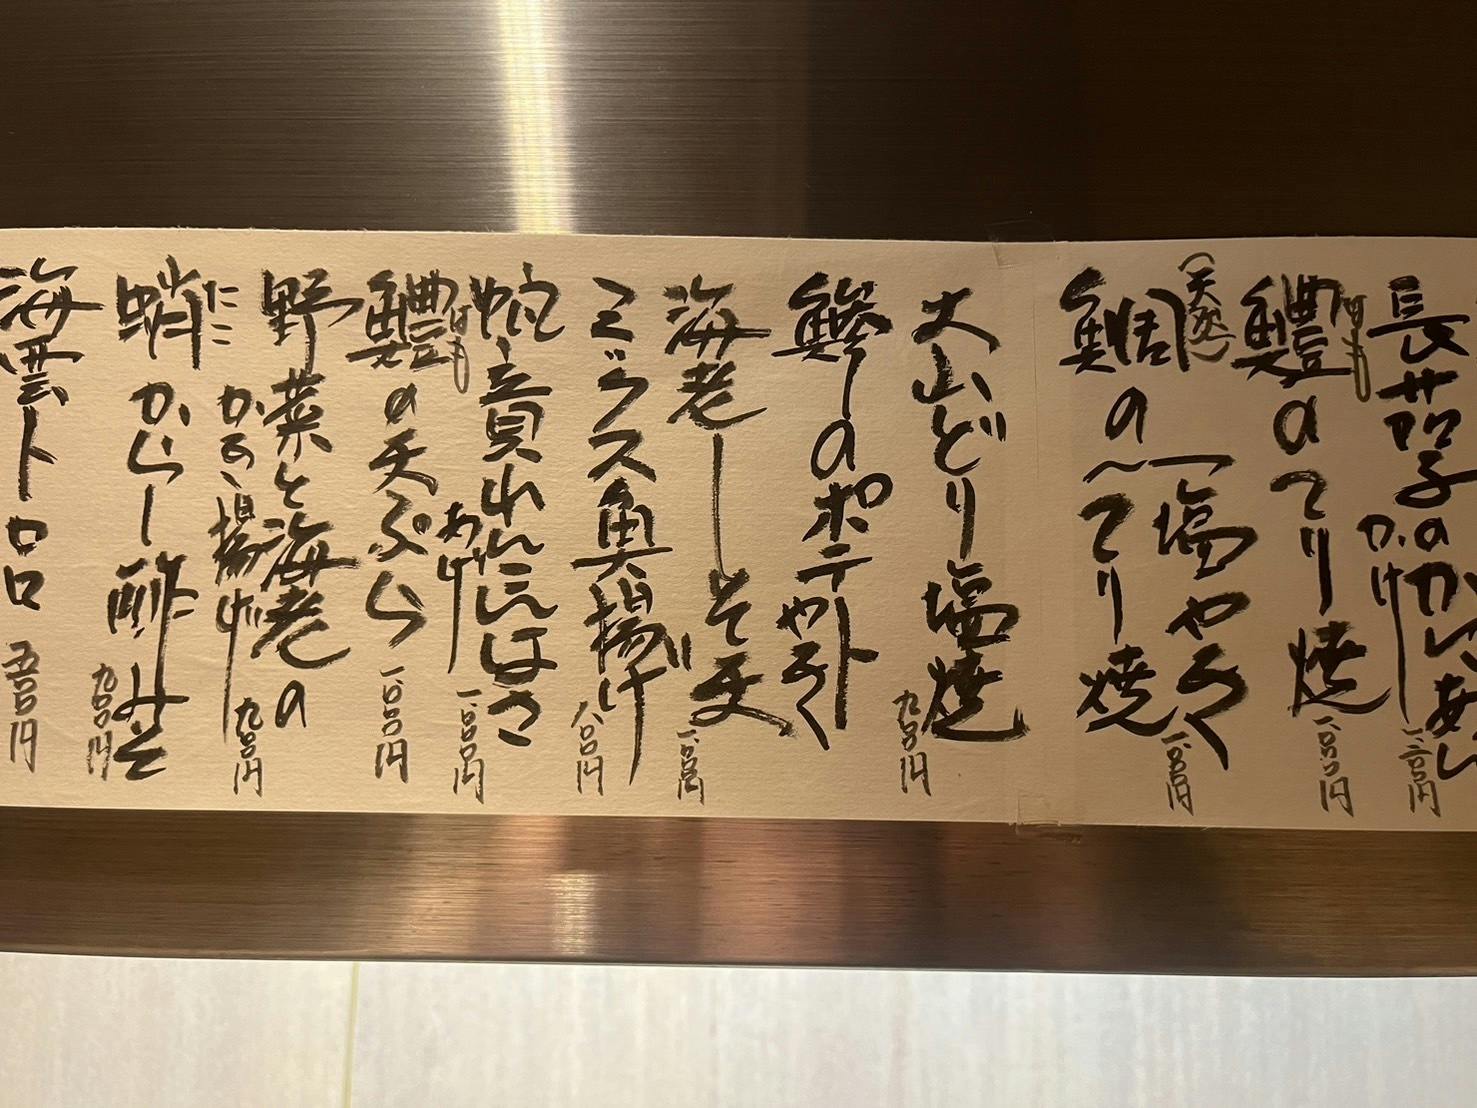 長茄子のカレーあん
かけ
一、二〇〇円
鱧のてり焼
はも
一、〇〇〇円
(天然)
鯛の
一塩やき
てり焼
一、〇〇〇円
大山どり塩焼
九〇〇円
鯵のポテトやき
海老しそ天
一、〇〇〇円
ミックス魚揚げ
八〇〇円
帆立貝れんこんはさ
みあげ
一、〇〇〇円
鱧の天ぷら
はも
一、〇〇〇円
野菜と海老の
かき揚げ
九〇〇円
蛸からし酢みそ
たこ
九〇〇円
海雲トロロ
五〇〇円